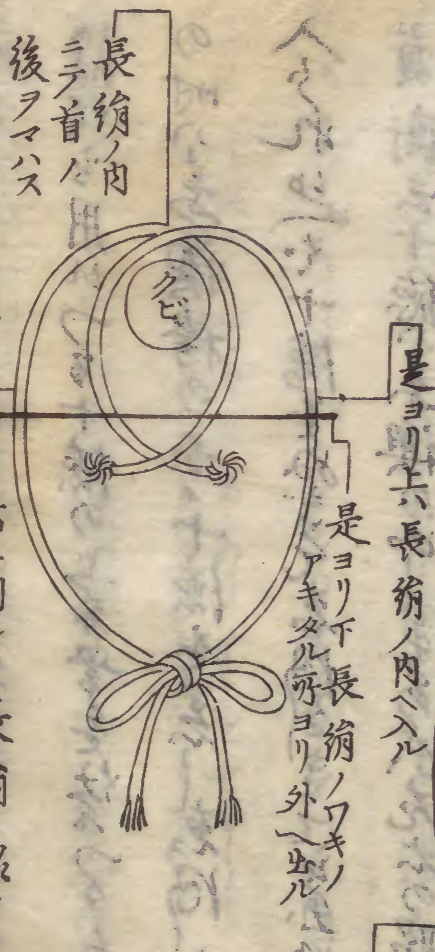 是ヨリ上ハ長絹ノ内ヘ入ル
是ヨリ下長絹ノワキノ
アキタル所ヨリ外ヘ出ル
クビ
長絹ノ内
ニテ首ノ
後ヲマハス